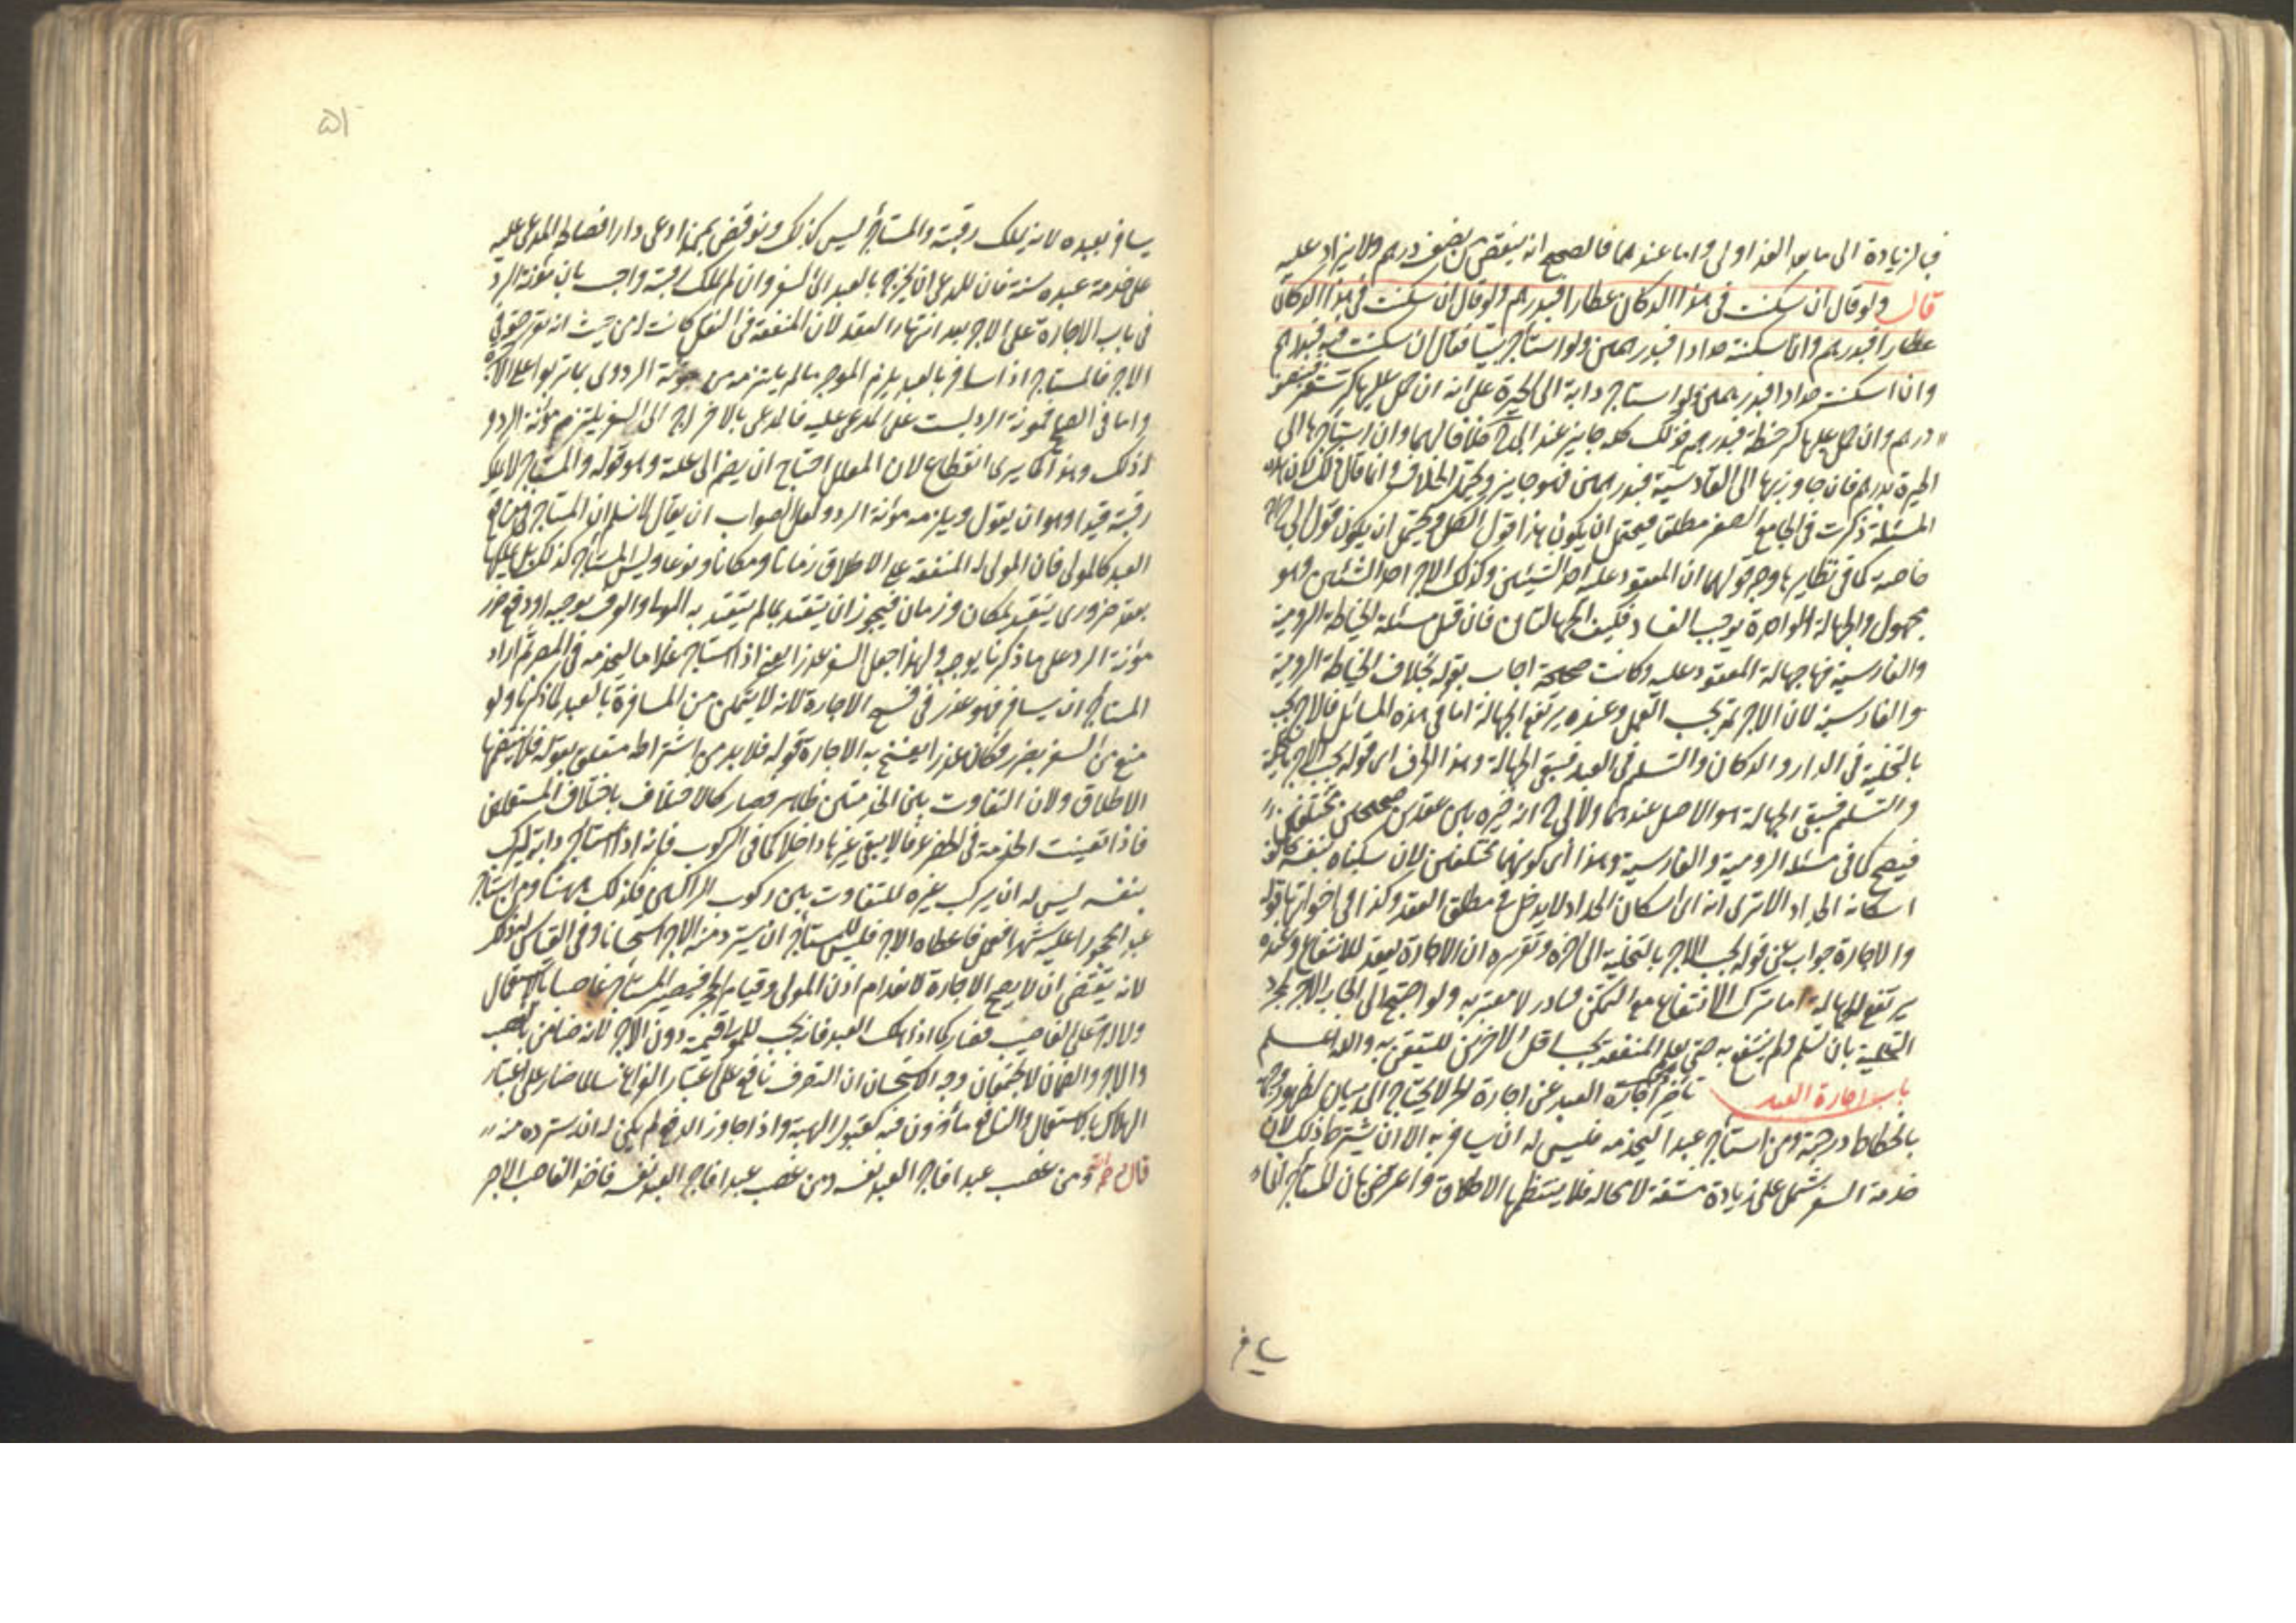 فبالزيادة الى ما بعد الغد اولى واما عندهما فالصحيح انه ينقص من نصف درهم ولا يزاد عليه
قال ولو قال ان سكنت فى هذا الدكان عطارا فبدرهم ولو قال ان سكنت فى هذا الدكان
عطارا فبدرهم وان اسكنته حدادا فبدرهمين ولو استأجر بيتا فقال ان سكنت فيه فبدرهم
وان اسكنت حدادا فبدرهمين ولو استاجر دابة الى الحيرة على انه ان حمل عليها كر شعير فبنصف
درهم وان حمل عليها كر حنطة فبدرهم فذلك كله جايز عند ابى ح خلافا لهما وان استأجرها الى
الحيرة بدرهم فان جاوز بها الى القادسية فبدرهمين فهو جايز ويحتمل الخلاف وانما قال ذلك لان هذه
المسئلة ذكرت فى الجامع الصغير مطلقا فيحتمل ان يكون هذا قول الكل ويحتمل ان يكون قول ابى ح
خاصة كما فى نظايرها وجه قولهما ان المعقود عليه احد الشيئين وكذلك الاجر احد الشيئين وهو
مجهول والجهالة الواحدة توجب الفساد فكيف الجهالتان فان قيل مسئلة الخياطة الرومية
والفارسية فيها جهالة المعقود عليه وكانت صحيحة اجاب بقوله بخلاف الخياطة الرومية
والفارسية لان الاجر ثمه يجب بالعمل وعنده يرتفع الجهالة اما فى هذه المسائل فالاجر يجب
بالتخلية فى الدار والدكان والتسليم فى العبد فتبقى الجهالة وهذا الحرف اى قوله يجب الاجر بالتخلية
والتسليم فتبقى الجهالة هو الاصل عندهما ولابى ح انه خيره بين عقدين صحيحين مختلفين
فيصح كما فى مسئلة الرومية والفارسية وهذا اى كونهما مختلفين لان سكناه بنفسه يخالف
اسكانه الحداد الا ترى انه اى اسكان الحداد لا يدخل فى مطلق العقد وكذا فى اخواتها قوله
والاجارة جواب عن قوله يجب الاجر بالتخلية الى اخره وتقريره ان الاجارة تعقد للانتفاع وعنده
يرتفع الجهالة اما ترك الانتفاع مع التمكن فنادر لا معتبر به ولو احتيج الى ايجاب الاجر بمجرد
التخلية بان تسلم ولم ينتفع به حتى يعلم المنفعة يجب اقل الاجرين للتيقن به والله اعلم
باب اجارة العبد تأخير اجارة العبد عن اجارة الحر لا يحتاج الى بيان لظهور وجهه
بانحطاط درجته ومن استأجر عبدا ليخدمه فليس له ان يسافر به الا ان يشترط ذلك لان
خدمة السفر تشتمل على زيادة مشقة لا محالة فلا ينتظمها الاطلاق واعترض بان المستأجر
يسافر
٥١
يسافر بعبده لانه يملك رقبته والمستأجر ليس كذلك ونوقض بمن ادعى دارا فصالحه المدعى عليه
على خدمة عبده سنة فان للمدعى ان يخرج بالعبد الى السفر وان لم يملك رقبته واجيب بان مؤنة الرد
فى باب الاجارة على الاجر بعد انتهاء العقد لان المنفعة فى النقل كانت له من حيث انه تقرر حقه فى
الاجر فالمستاجر اذا سافر بالعبد يلزم الموجر ما لم يلتزمه من مؤنة الرد وربما تربوا على الاجرة
واما فى الصلح فمؤنة الرد ليست على المدعى عليه فالمدعى بالاخراج الى السفر يلتزم مؤنة الرد و
له ذلك وهذا كما يرى انقطاع لان المعلل احتاج ان يضم الى علته وهو قوله والمستأجر لا يملك
رقبته قيدا وهو ان يقول ويلزمه مؤنة الرد ولعل الصواب ان يقال لا نسلم ان المستأجر فى منافع
العبد كالمولى فان المولى له المنفعة على الاطلاق زمانا ومكانا ونوعا وليس المستأجر كذلك بل يملكها
بعقد ضرورى يتقيد بمكان وزمان فيجوز ان يتقيد بما لم يتقيد به المولى والعرف يوجبه او دفع ضرر
مؤنة الرد على ما ذكرنا يوجبه ولهذا جعل السفر عذرا يعنى اذا استاجر غلاما ليخدمه فى المصر ثم اراد
المستاجر ان يسافر فهو عذر فى فسخ الاجارة لانه لا يتمكن من المسافرة بالعبد لما ذكرنا ولو
منع من السفر بضرر فكان عذرا يفسخ به الاجارة قوله فلا بد من اشتراطه متعلق بقوله فلا ينتظمها
الاطلاق ولان التفاوت بين الخدمتين ظاهر فصار كالاختلاف باختلاف المستعملين
فاذا تعينت الخدمة فى الحضر عرفا لا يبقى غيرها داخلا كما فى الركوب فانه اذا استأجر دابة ليركب
بنفسه ليس له ان يركب غيره للتفاوت بين ركوب الراكبين فكذلك هاهنا ومن استاجر
عبدا محجورا عليه شهرا فعمل فاعطاه الاجر فليس للمستأجر ان يسترد منه الاجر استحسانا وفى القياس له ذلك
لانه يقتضى ان لا يصح الاجارة لانعدام اذن المولى وقيام الحجر فيصير المستأجر غاصبا بالاستعمال
ولا اجر على الغاصب فصار كما اذا هلك العبد فانه يجب للمولى قيمته دون الاجر لانه ضامن بالغصب
والاجر والضمان لا يجتمعان وجه الاستحسان ان التصرف نافع على اعتبار الفراغ سالما ضار على اعتبار
الهلاك بالاستعمال والنافع مأذون فيه كقبول الهبة واذا جاوز الدفع لم يكن له ان يسترده منه
قال ومن غصب عبدا فاجر العبد نفسه ومن غصب عبدا فاجر العبد نفسه فاخذ الغاصب الاجر